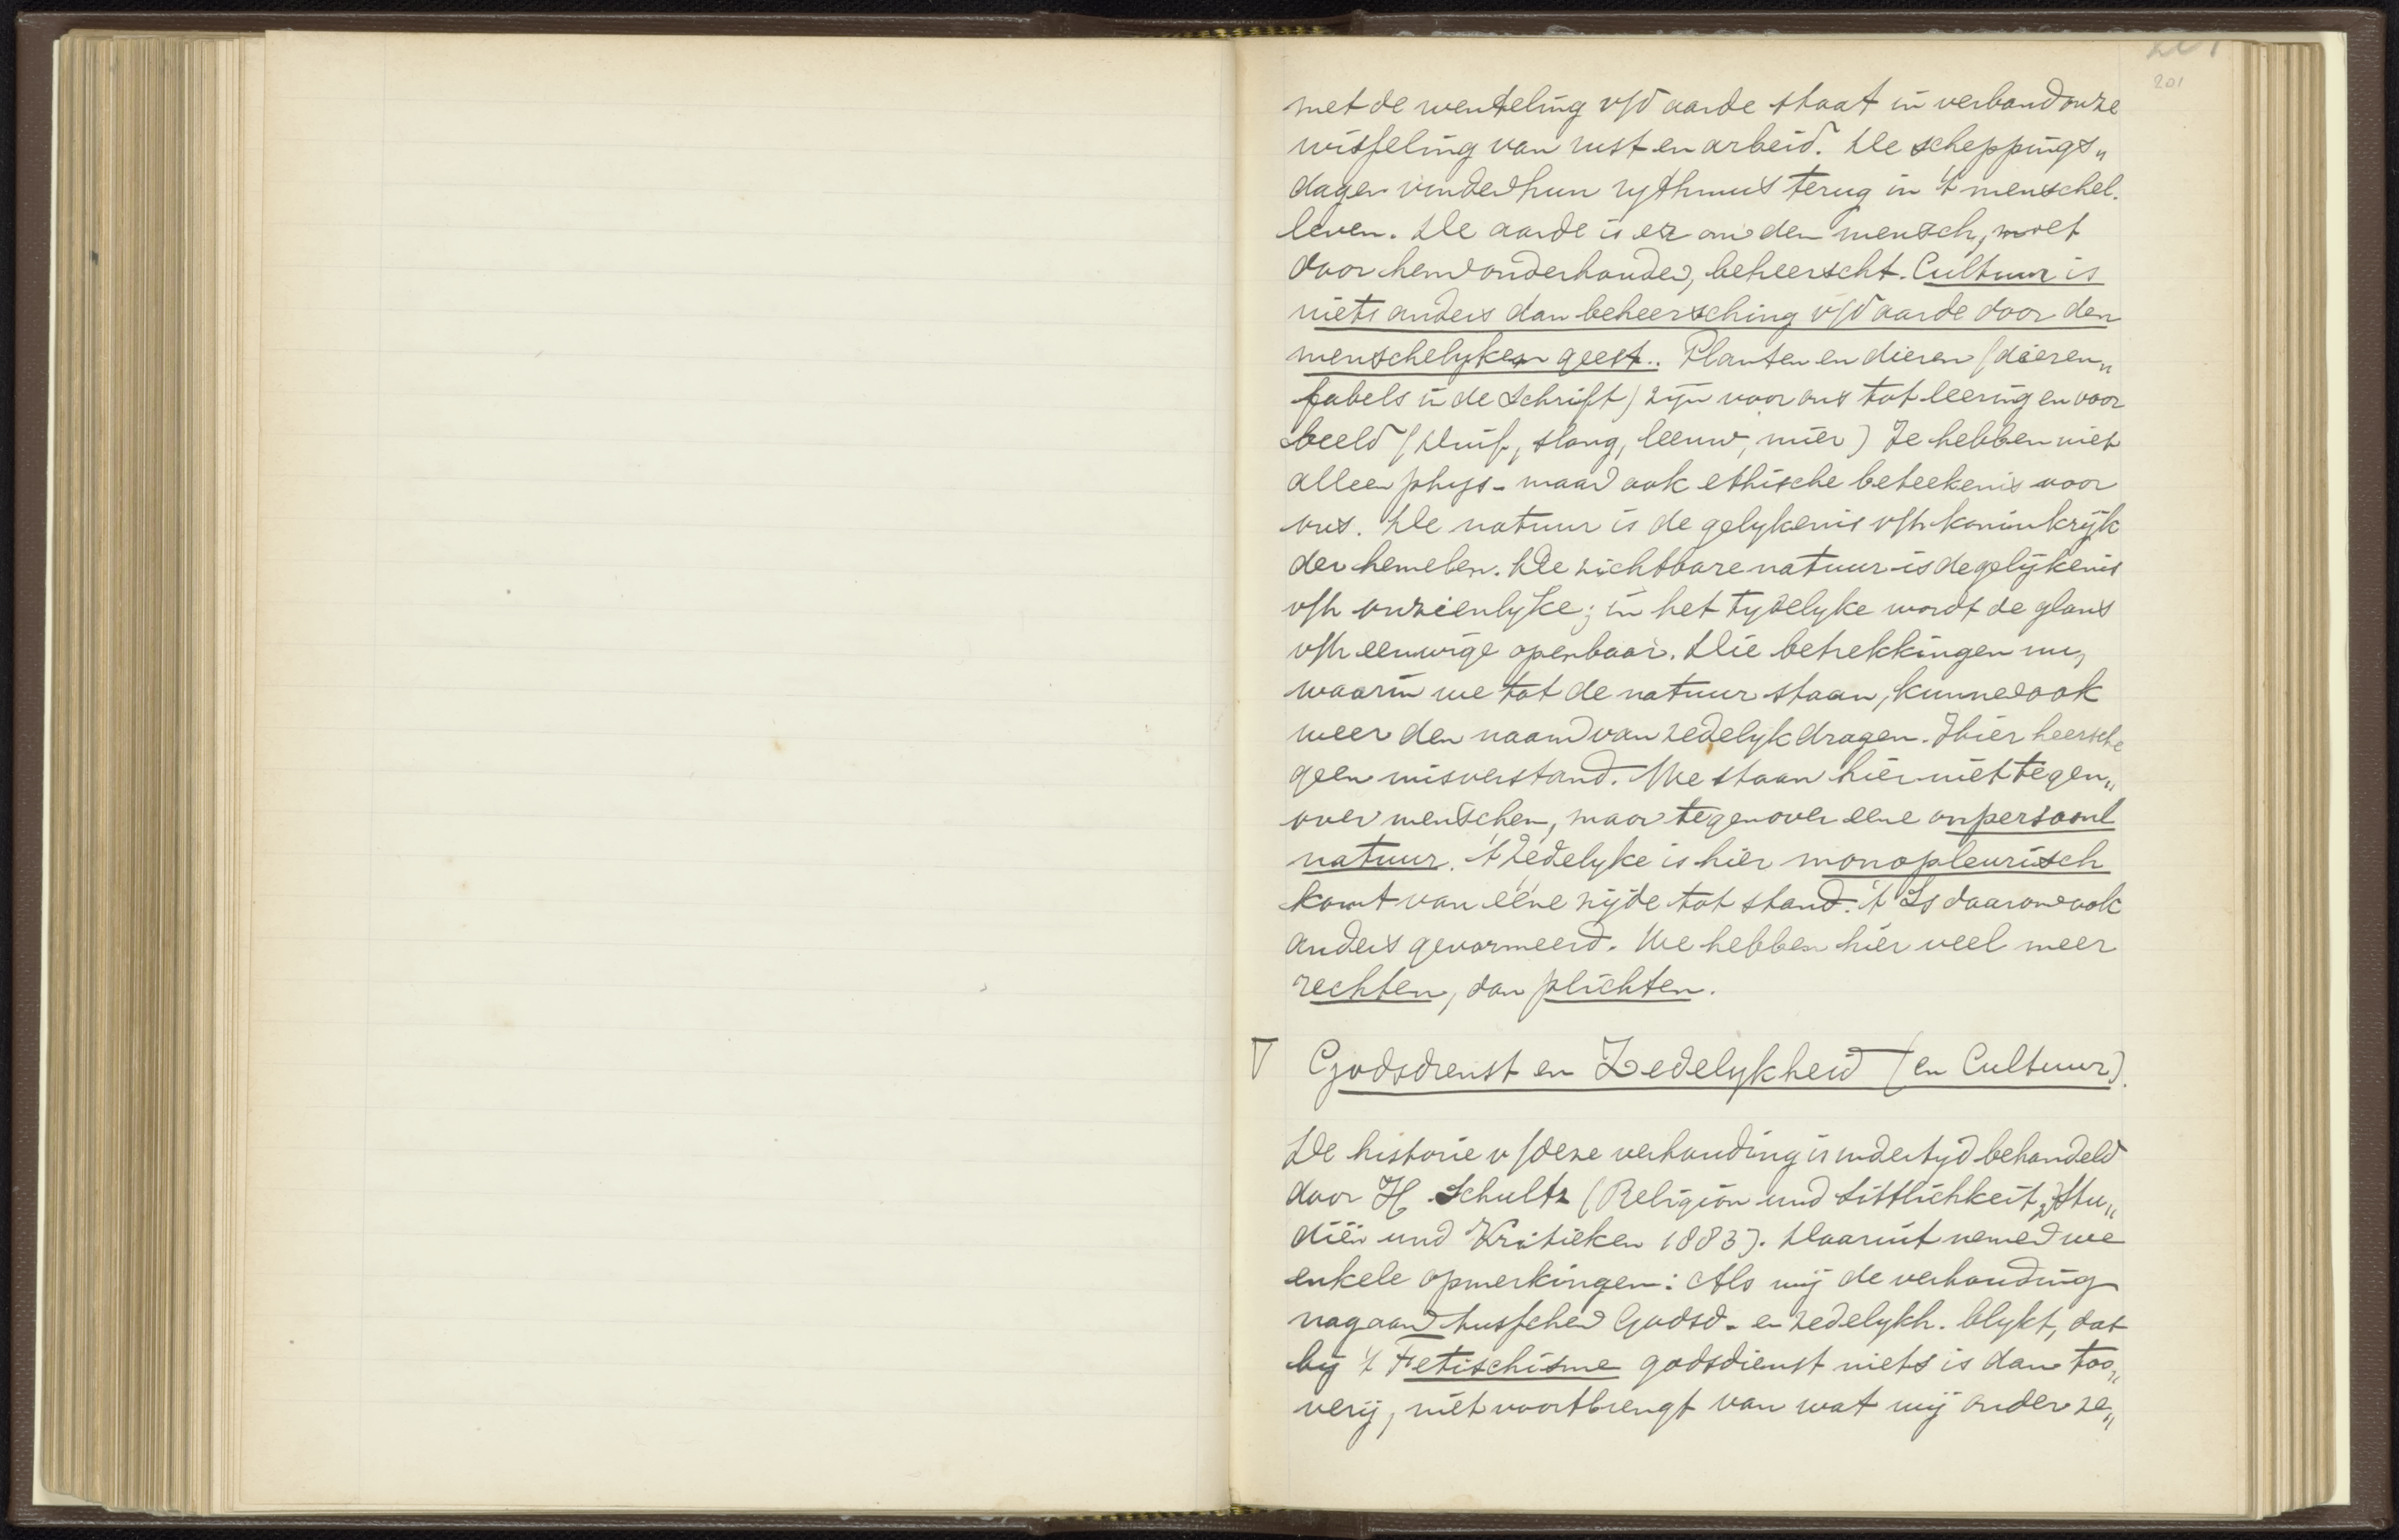 201
201
met de wenteling v/d aarde staat in verband onze
wisseling van rust en arbeid. De scheppings„
dagen vinden hun rythmus terug in 't menschel.
leven. De aarde is er om den mensch, moet
door hem onderhouden, beheerscht. Cultuur is
niets anders dan beheersching v/d aarde door den
menschelyken geest.. Planten en dieren (dieren„
fabels in de Schrift) zyn voor ons tot leering en voor
beeld (Duif, slang, leeuw, mier) Ze hebben niet
alleen phys- maar ook ethische beteekenis voor
ons. De natuur is de gelykenis v/h koninkrijk
der hemelen. De zichtbare natuur is de gelijkenis
v/h onzienlyke; in het tydelyke wordt de glans
v/h eeuwige openbaar. Die betrekkingen nu,
waarin we tot de natuur staan, kunnen ook
weer den naam van zedelyk dragen. Hier heersche
geen misverstand. We staan hier niet tegen„
over menschen, maar tegenover eene onpersoonl
natuur. 't Zedelyke is hier monopleurisch
komt van ééne zijde tot stand. 't Is daarom ook
anders genormeerd. We hebben hier veel meer
rechten, dan plichten.
∇ Godsdienst en Zedelykheid (en Cultuur).
De historie v/deze verhouding is indertyd behandeld
door H. Schultz (Religion und Sittlichkeit, Stu„
diën und Kritieken 1883). Daaruit nemen we
enkele opmerkingen: Als wij de verhouding
nagaan tusschen Godsd- en zedelykh. blykt, dat
bij 't Fetischisme godsdienst niets is dan too„
verij, niet voortbrengt van wat wij onder ze„